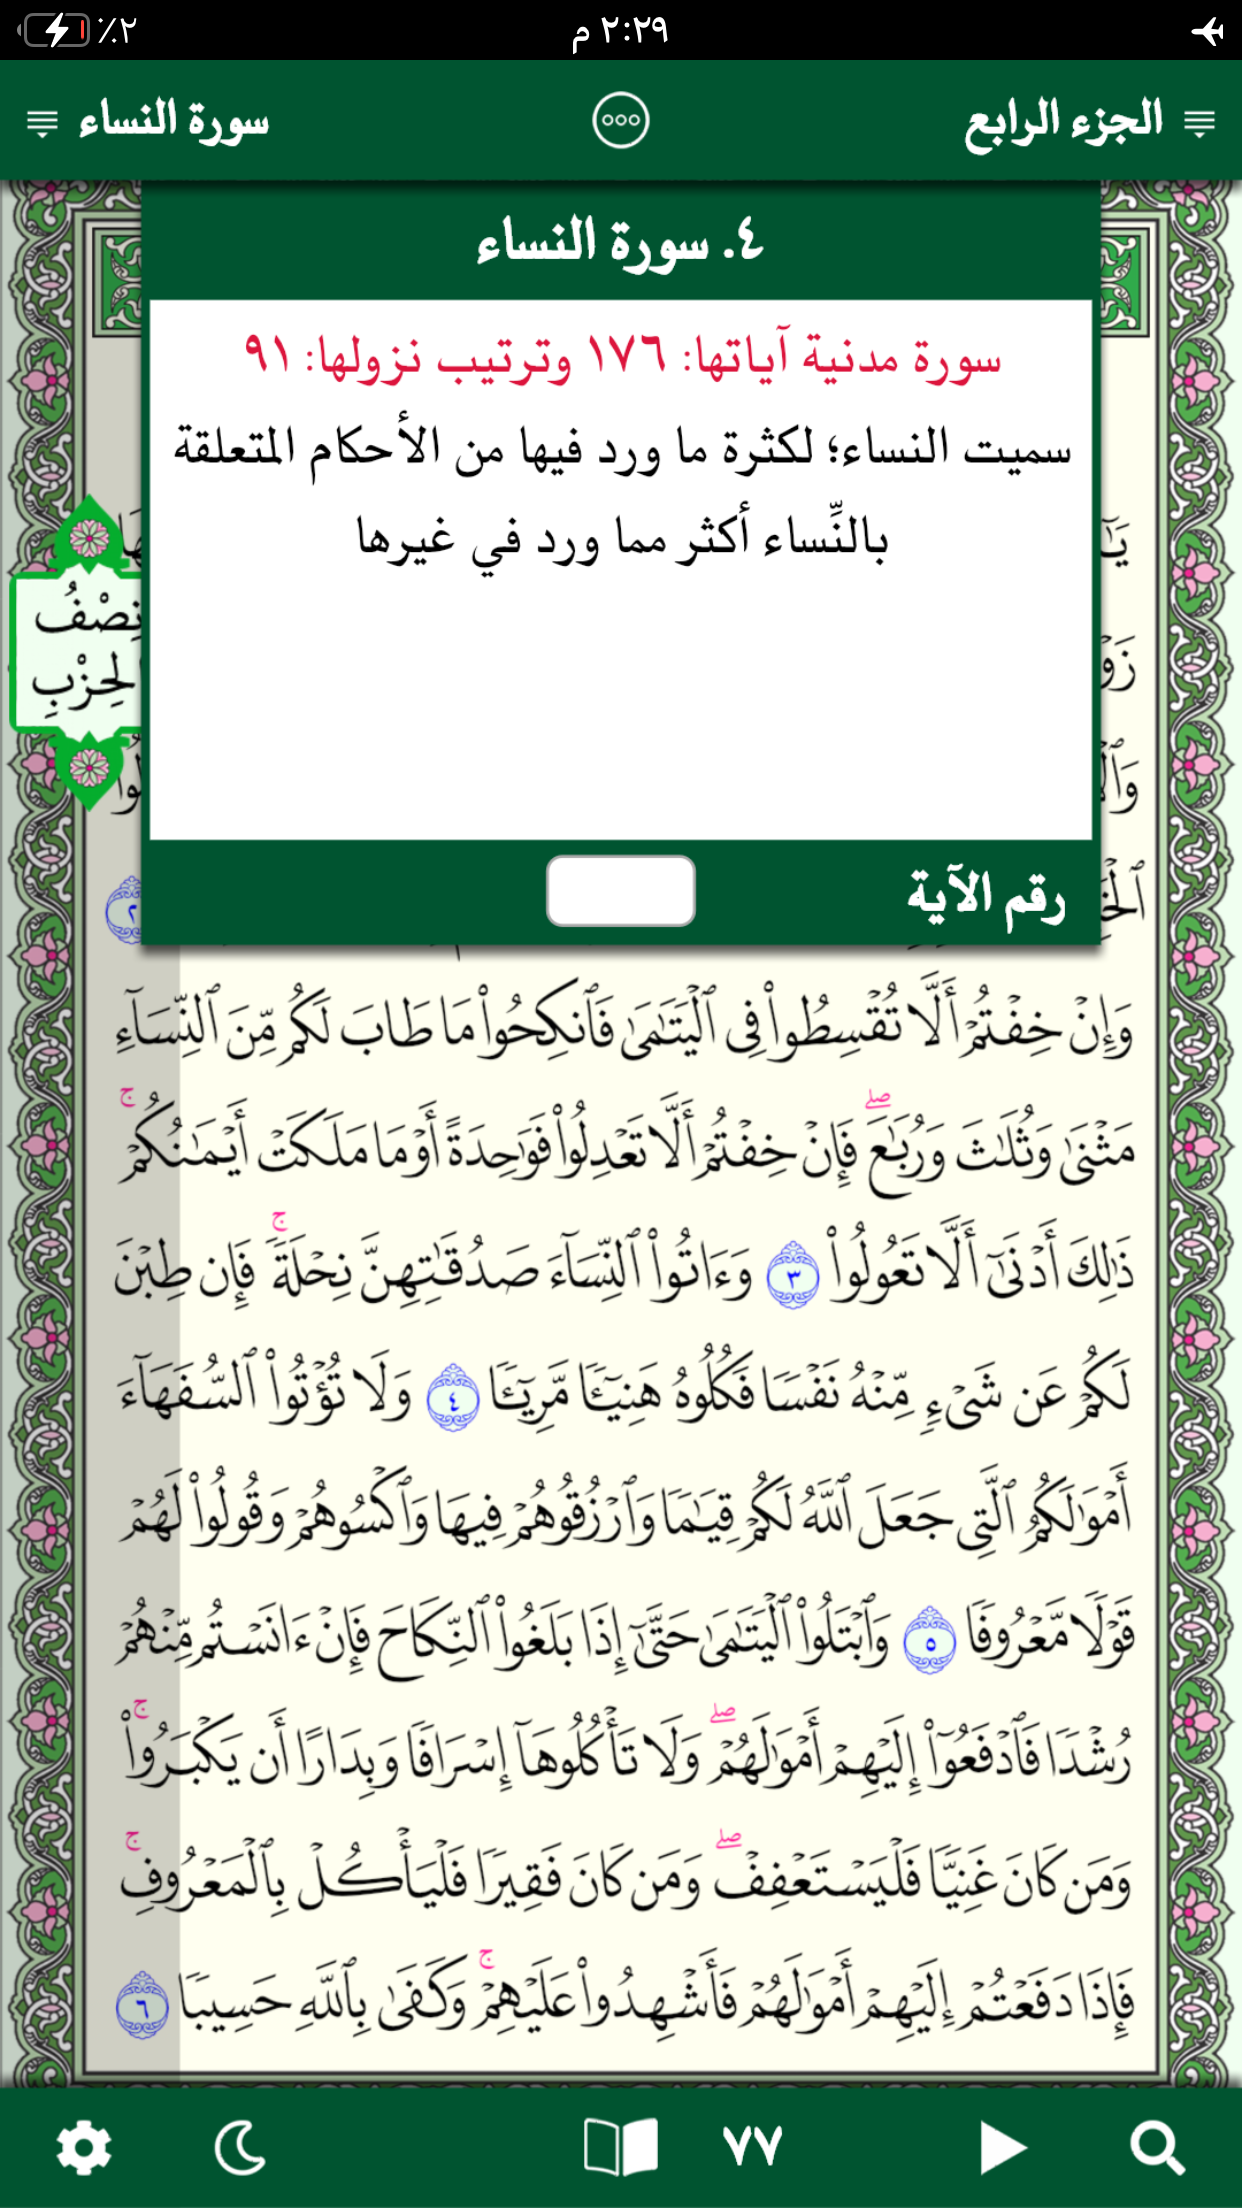 ٪٢ ٢:٢٩ م
الجزء الرابع سورة النساء
٤. سورة النساء
سورة مدنية آياتها: ١٧٦ وترتيب نزولها: ٩١
سميت النساء؛ لكثرة ما ورد فيها من الأحكام المتعلقة
بالنِّساء أكثر مما ورد في غيرها
نِصْفُ
لِحِزْبِ
رقم الآية
٢
وَإِنْ خِفْتُمْ أَلَّا تُقْسِطُواْ فِى ٱلْيَتَٰمَىٰ فَٱنكِحُواْ مَا طَابَ لَكُم مِّنَ ٱلنِّسَآءِ
مَثْنَىٰ وَثُلَٰثَ وَرُبَٰعَ ۖ فَإِنْ خِفْتُمْ أَلَّا تَعْدِلُواْ فَوَٰحِدَةً أَوْ مَا مَلَكَتْ أَيْمَٰنُكُمْ ۚ
ذَٰلِكَ أَدْنَىٰٓ أَلَّا تَعُولُواْ ٣ وَءَاتُواْ ٱلنِّسَآءَ صَدُقَٰتِهِنَّ نِحْلَةً ۚ فَإِن طِبْنَ
لَكُمْ عَن شَىْءٍ مِّنْهُ نَفْسًا فَكُلُوهُ هَنِيٓـًٔا مَّرِيٓـًٔا ٤ وَلَا تُؤْتُواْ ٱلسُّفَهَآءَ
أَمْوَٰلَكُمُ ٱلَّتِى جَعَلَ ٱللَّهُ لَكُمْ قِيَٰمًا وَٱرْزُقُوهُمْ فِيهَا وَٱكْسُوهُمْ وَقُولُواْ لَهُمْ
قَوْلًا مَّعْرُوفًا ٥ وَٱبْتَلُواْ ٱلْيَتَٰمَىٰ حَتَّىٰٓ إِذَا بَلَغُواْ ٱلنِّكَاحَ فَإِنْ ءَانَسْتُم مِّنْهُمْ
رُشْدًا فَٱدْفَعُوٓاْ إِلَيْهِمْ أَمْوَٰلَهُمْ ۖ وَلَا تَأْكُلُوهَآ إِسْرَافًا وَبِدَارًا أَن يَكْبَرُواْ ۚ
وَمَن كَانَ غَنِيًّا فَلْيَسْتَعْفِفْ ۖ وَمَن كَانَ فَقِيرًا فَلْيَأْكُلْ بِٱلْمَعْرُوفِ ۚ
فَإِذَا دَفَعْتُمْ إِلَيْهِمْ أَمْوَٰلَهُمْ فَأَشْهِدُواْ عَلَيْهِمْ ۚ وَكَفَىٰ بِٱللَّهِ حَسِيبًا ٦
٧٧